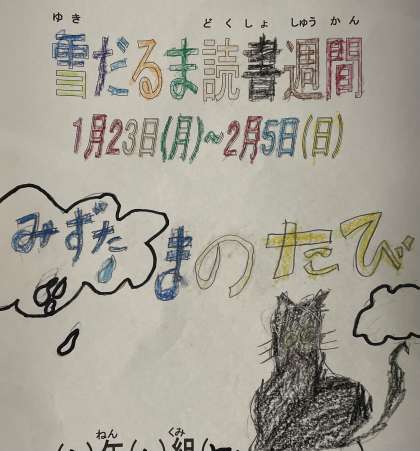 ゆき どくしょ しゅうかん
雪だるま読書週間
1月23日(月)~2月5日(日)
みずたまのたび
ねん くみ
年 組